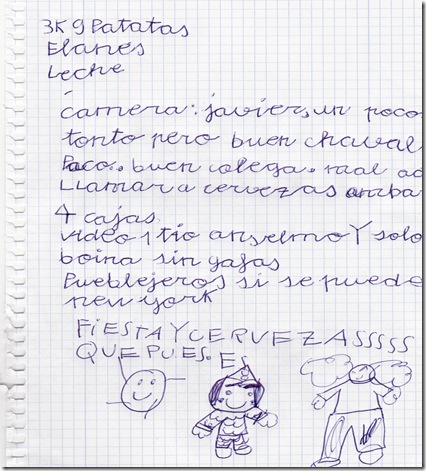 3K g Patatas
Flanes
Leche
camera: javier, un poco
tonto pero buen chaval
Paco.. buen colega. mal ac
Llamar a cervezas amba
4 cajas
video 1 tio anselmo Y solo
boina sin gafas
Pueblejeros si se puede
new york
FiESTA Y CERVEZASSSSS
QUE PUES. ES